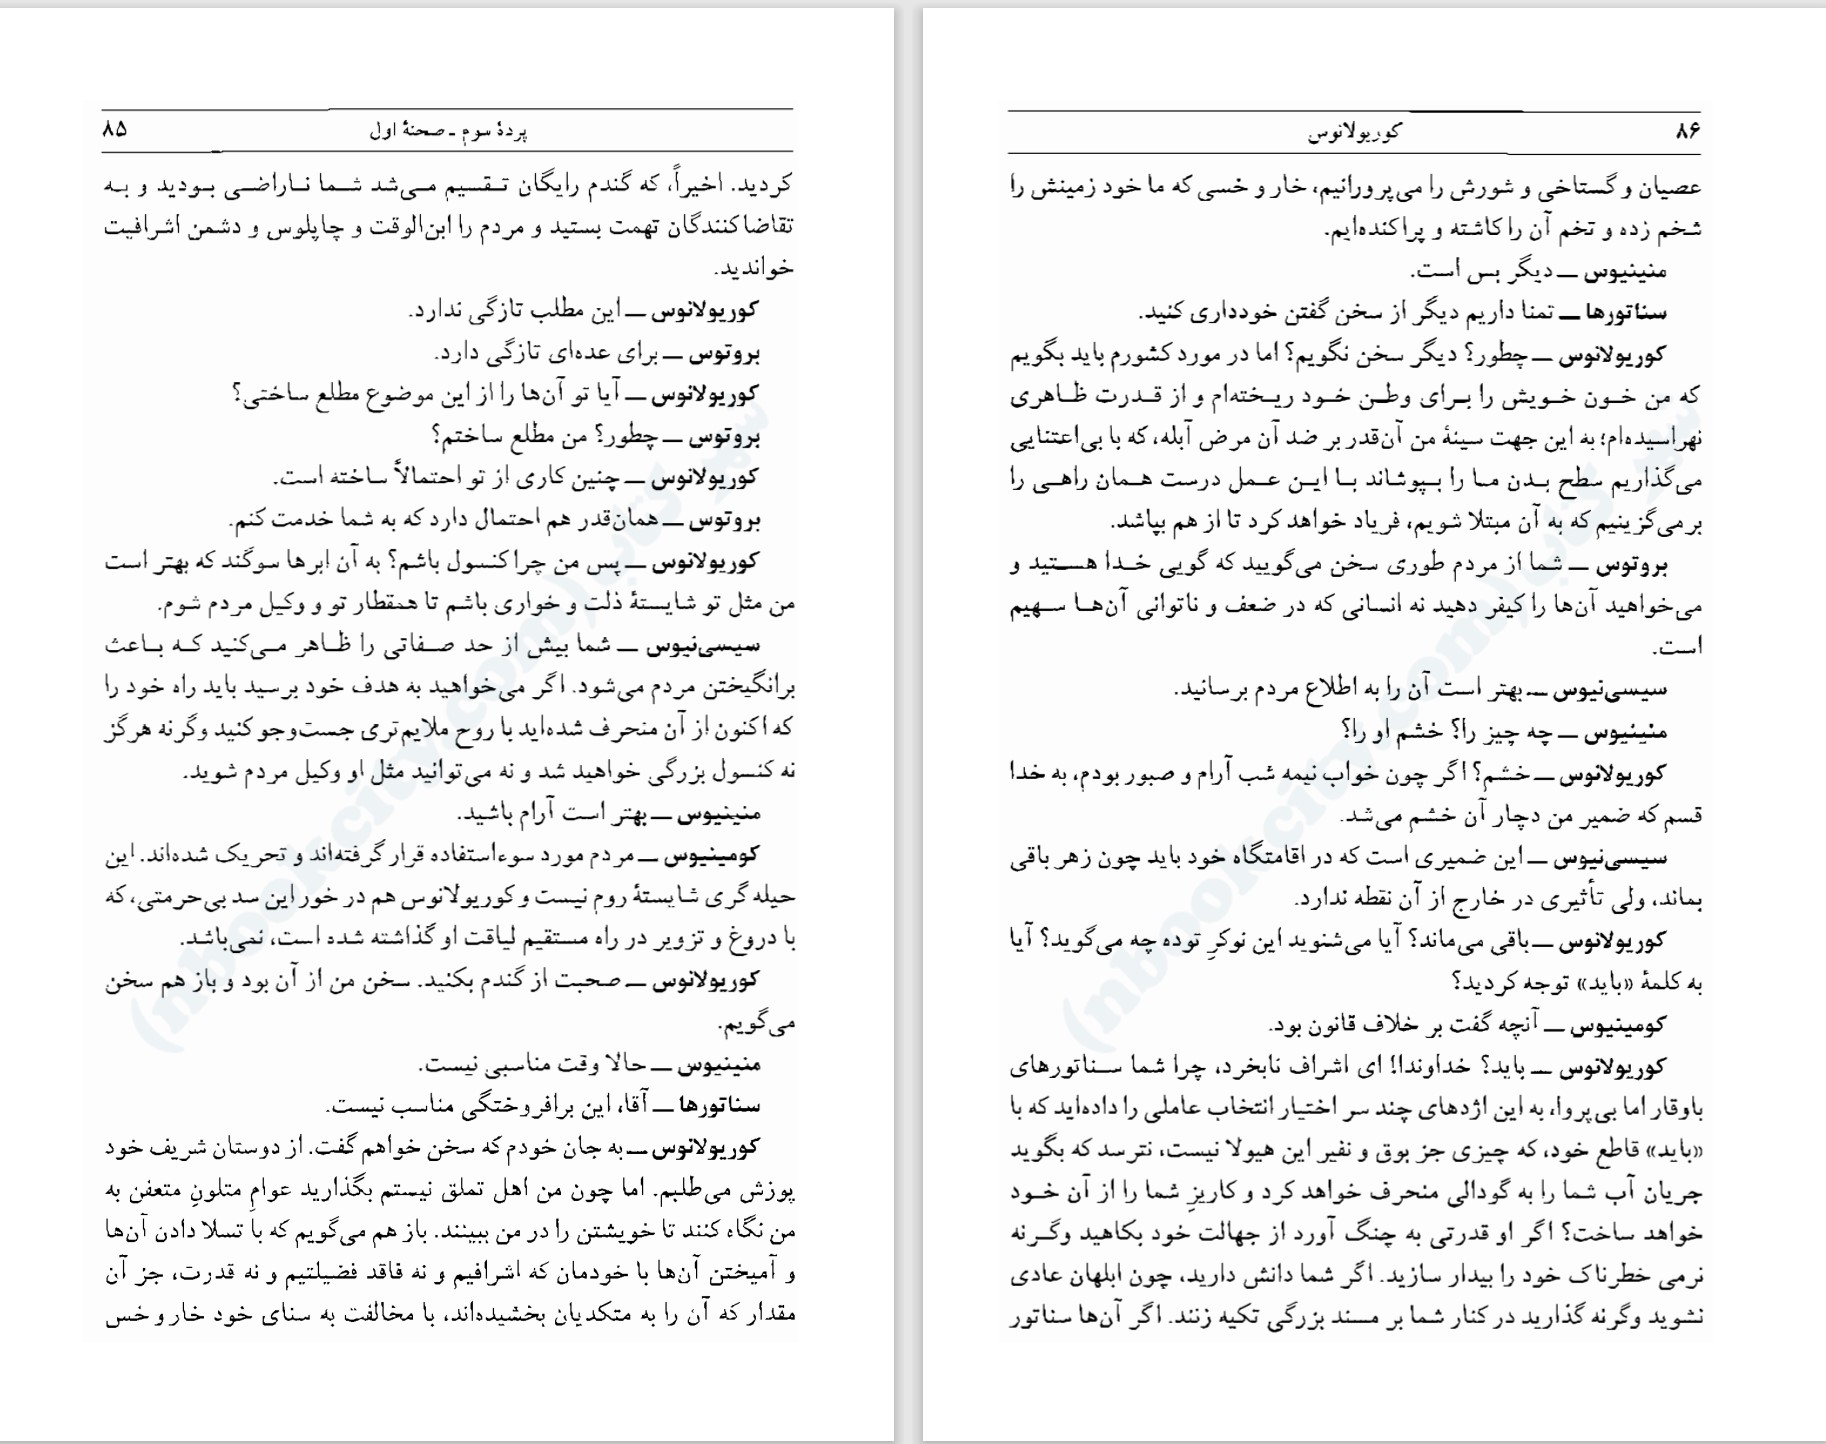 پردهٔ سوم ـ صحنهٔ اول ۸۵
کردید. اخیراً، که گندم رایگان تـقسیم مـی‌شد شـما نـاراضـی بـودید و بـه
تقاضاکنندگان تهمت بستید و مردم را ابن‌الوقت و چاپلوس و دشمن اشرافیت
خواندید.
کوریولانوس ــ این مطلب تازگی ندارد.
بروتوس ــ برای عده‌ای تازگی دارد.
کوریولانوس ــ آیا تو آن‌ها را از این موضوع مطلع ساختی؟
بروتوس ــ چطور؟ من مطلع ساختم؟
کوریولانوس ــ چنین کاری از تو احتمالاً ساخته است.
بروتوس ــ همان‌قدر هم احتمال دارد که به شما خدمت کنم.
کوریولانوس ــ پس من چرا کنسول باشم؟ به آن ابرها سوگند که بهتر است
من مثل تو شایستهٔ ذلت و خواری باشم تا همقطار تو و وکیل مردم شوم.
سیسی‌نیوس ــ شما بیش از حد صـفاتی را ظـاهر مـی‌کنید کـه بـاعث
برانگیختن مردم می‌شود. اگر می‌خواهید به هدف خود برسید باید راه خود را
که اکنون از آن منحرف شده‌اید با روح ملایم‌تری جست‌وجو کنید وگرنه هرگز
نه کنسول بزرگی خواهید شد و نه می‌توانید مثل او وکیل مردم شوید.
منینیوس ــ بهتر است آرام باشید.
کومینیوس ــ مردم مورد سوءاستفاده قرار گرفته‌اند و تحریک شده‌اند. این
حیله گری شایستهٔ روم نیست و کوریولانوس هم در خور این سد بی‌حرمتی، که
با دروغ و تزویر در راه مستقیم لیاقت او گذاشته شده است، نمی‌باشد.
کوریولانوس ــ صحبت از گندم بکنید. سخن من از آن بود و باز هم سخن
می‌گویم.
منینیوس ــ حالا وقت مناسبی نیست.
سناتورها ــ آقا، این برافروختگی مناسب نیست.
کوریولانوس ــ به جان خودم که سخن خواهم گفت. از دوستان شریف خود
پوزش می‌طلبم. اما چون من اهل تملق نیستم بگذارید عوامِ متلونِ متعفن به
من نگاه کنند تا خویشتن را در من ببینند. باز هم می‌گویم که با تسلا دادن آن‌ها
و آمیختن آن‌ها با خودمان که اشرافیم و نه فاقد فضیلتیم و نه قدرت، جز آن
مقدار که آن را به متکدیان بخشیده‌اند، با مخالفت به سنای خود خار و خس
۸۶ کوریولانوس
عصیان و گستاخی و شورش را می‌پرورانیم، خار و خسی که ما خود زمینش را
شخم زده و تخم آن را کاشته و پراکنده‌ایم.
منینیوس ــ دیگر بس است.
سناتورها ــ تمنا داریم دیگر از سخن گفتن خودداری کنید.
کوریولانوس ــ چطور؟ دیگر سخن نگویم؟ اما در مورد کشورم باید بگویم
که من خـون خـویش را بـرای وطـن خـود ریـخته‌ام و از قـدرت ظـاهری
نهراسیده‌ام؛ به این جهت سینهٔ من آن‌قدر بر ضد آن مرض آبله، که با بی‌اعتنایی
می‌گذاریم سطح بـدن مـا را بـپوشاند بـا ایـن عـمل درست هـمان راهـی را
برمی‌گزینیم که به آن مبتلا شویم، فریاد خواهد کرد تا از هم بپاشد.
بروتوس ــ شما از مردم طوری سخن می‌گویید که گویی خـدا هسـتید و
می‌خواهید آن‌ها را کیفر دهید نه انسانی که در ضعف و ناتوانی آن‌هـا سـهیم
است.
سیسی‌نیوس ــ بهتر است آن را به اطلاع مردم برسانید.
منینیوس ــ چه چیز را؟ خشم او را؟
کوریولانوس ــ خشم؟ اگر چون خواب نیمه شب آرام و صبور بودم، به خدا
قسم که ضمیر من دچار آن خشم می‌شد.
سیسی‌نیوس ــ این ضمیری است که در اقامتگاه خود باید چون زهر باقی
بماند، ولی تأثیری در خارج از آن نقطه ندارد.
کوریولانوس ــ باقی می‌ماند؟ آیا می‌شنوید این نوکرِ توده چه می‌گوید؟ آیا
به کلمهٔ «باید» توجه کردید؟
کومینیوس ــ آنچه گفت بر خلاف قانون بود.
کوریولانوس ــ باید؟ خداوندا! ای اشراف نابخرد، چرا شما سـناتورهای
باوقار اما بی‌پروا، به این اژدهای چند سر اختیار انتخاب عاملی را داده‌اید که با
«باید» قاطع خود، که چیزی جز بوق و نفیر این هیولا نیست، نترسد که بگوید
جریان آب شما را به گودالی منحرف خواهد کرد و کاریزِ شما را از آن خـود
خواهد ساخت؟ اگر او قدرتی به چنگ آورد از جهالت خود بکاهید وگـرنه
نرمی خطرناک خود را بیدار سازید. اگر شما دانش دارید، چون ابلهان عادی
نشوید وگرنه گذارید در کنار شما بر مسند بزرگی تکیه زنند. اگر آن‌ها سناتور
شهر کتاب (nbookcity.com)
شهر کتاب (nbookcity.com)